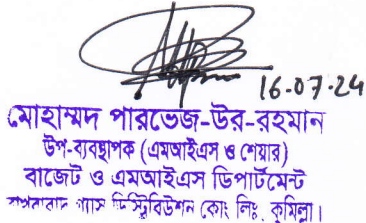 16-07-24
মোহাম্মদ পারভেজ-উর-রহমান
উপ-ব্যবস্থাপক (এমআইএস ও শেয়ার)
বাজেট ও এমআইএস ডিপার্টমেন্ট
বাখরাবাদ গ্যাস ডিস্ট্রিবিউশন কোং লিঃ, কুমিল্লা।